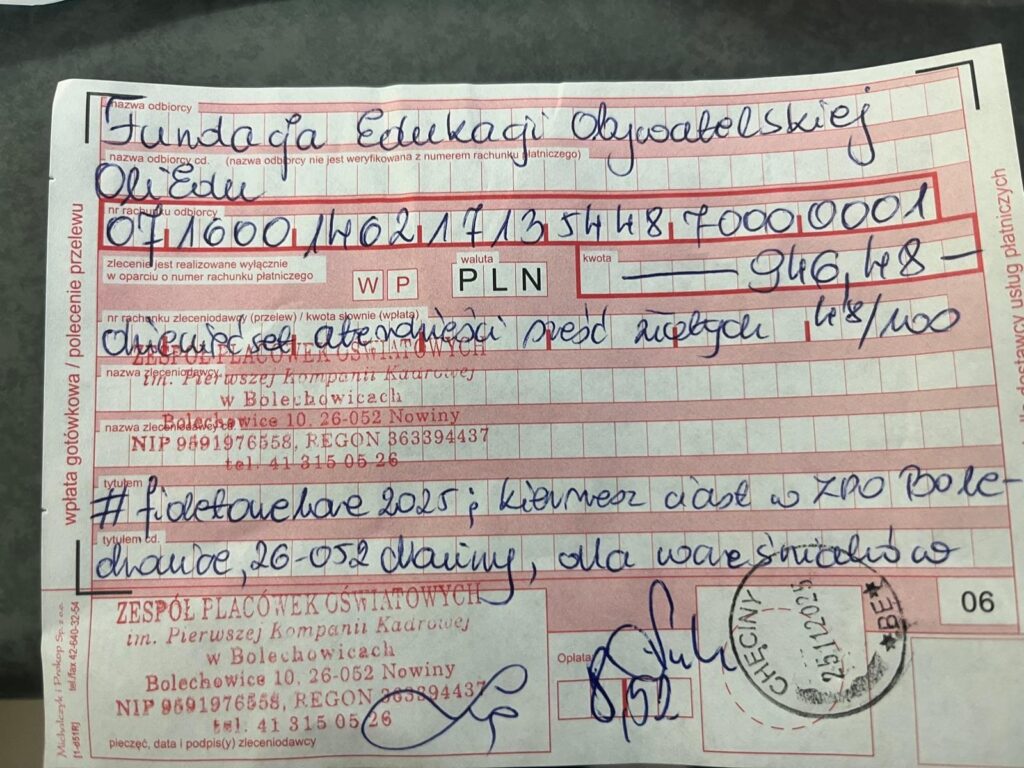 nazwa odbiorcy
Fundacja Edukacji Obywatelskiej
nazwa odbiorcy cd. (nazwa odbiorcy nie jest weryfikowana z numerem rachunku płatniczego)
OliEdu
nr rachunku odbiorcy
07 1600 1462 1713 5448 7000 0001
zlecenie jest realizowane wyłącznie
w oparciu o numer rachunku płatniczego
W P
waluta
PLN
kwota
— 946,48 —
nr rachunku zleceniodawcy (przelew) / kwota słownie (wpłata)
dziewięćset czterdzieści sześć złotych 48/100
ZESPÓŁ PLACÓWEK OŚWIATOWYCH
nazwa zleceniodawcy
im. Pierwszej Kompanii Kadrowej
w Bolechowicach
Bolechowice 10, 26-052 Nowiny
nazwa zleceniodawcy cd.
NIP 9591976558, REGON 363394437
tel. 41 315 05 26
tytułem
#fioletowelove 2025; kiermasz ciast w ZPO Bole-
tytułem cd.
chowice, 26-052 Nowiny, dla wcześniaków
ZESPÓŁ PLACÓWEK OŚWIATOWYCH
im. Pierwszej Kompanii Kadrowej
w Bolechowicach
Bolechowice 10, 26-052 Nowiny
NIP 9591976558, REGON 363394437
tel. 41 315 05 26
pieczęć, data i podpis(y) zleceniodawcy
Opłata
8,52
CHĘCINY
25112025
*BE*
06
wpłata gotówkowa / polecenie przelewu
dostawcy usług płatniczych
Michalczyk i Prokop Sp. z o.o.
tel./fax 42-640-32-54